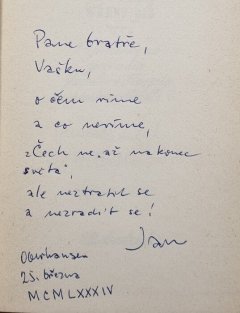 Pane bratře,
Vašku,
o čem víme
a co nevíme,
z Čech ne „až na konec
světa",
ale neztratit se
a nezradit se!
Jan
Oberhausen
25. března
MCMLXXXIV